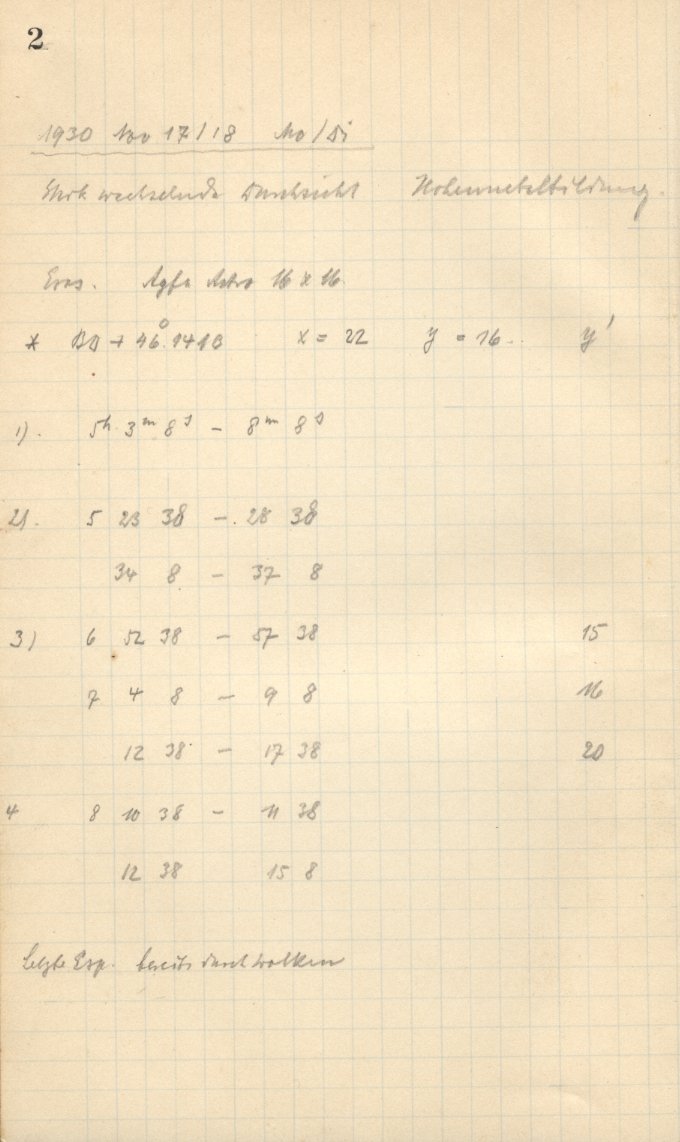 2
1930 Nov 17/18 Mo/Di
Stark wechselnde Durchsicht Hohennebelbildung.
Eros. Agfa Astro 16 x 16
* BD + 46° 1413 x = 22 y = 16. y'
1). 5h 3m 8s – 8m 8s
2). 5 23 38 – 28 38
34 8 – 37 8
3) 6 52 38 – 57 38 15
7 4 8 – 9 8 16
12 38 – 17 38 20
4 8 10 38 – 11 38
12 38 15 8
Letzte Exp. bereits durch Wolken